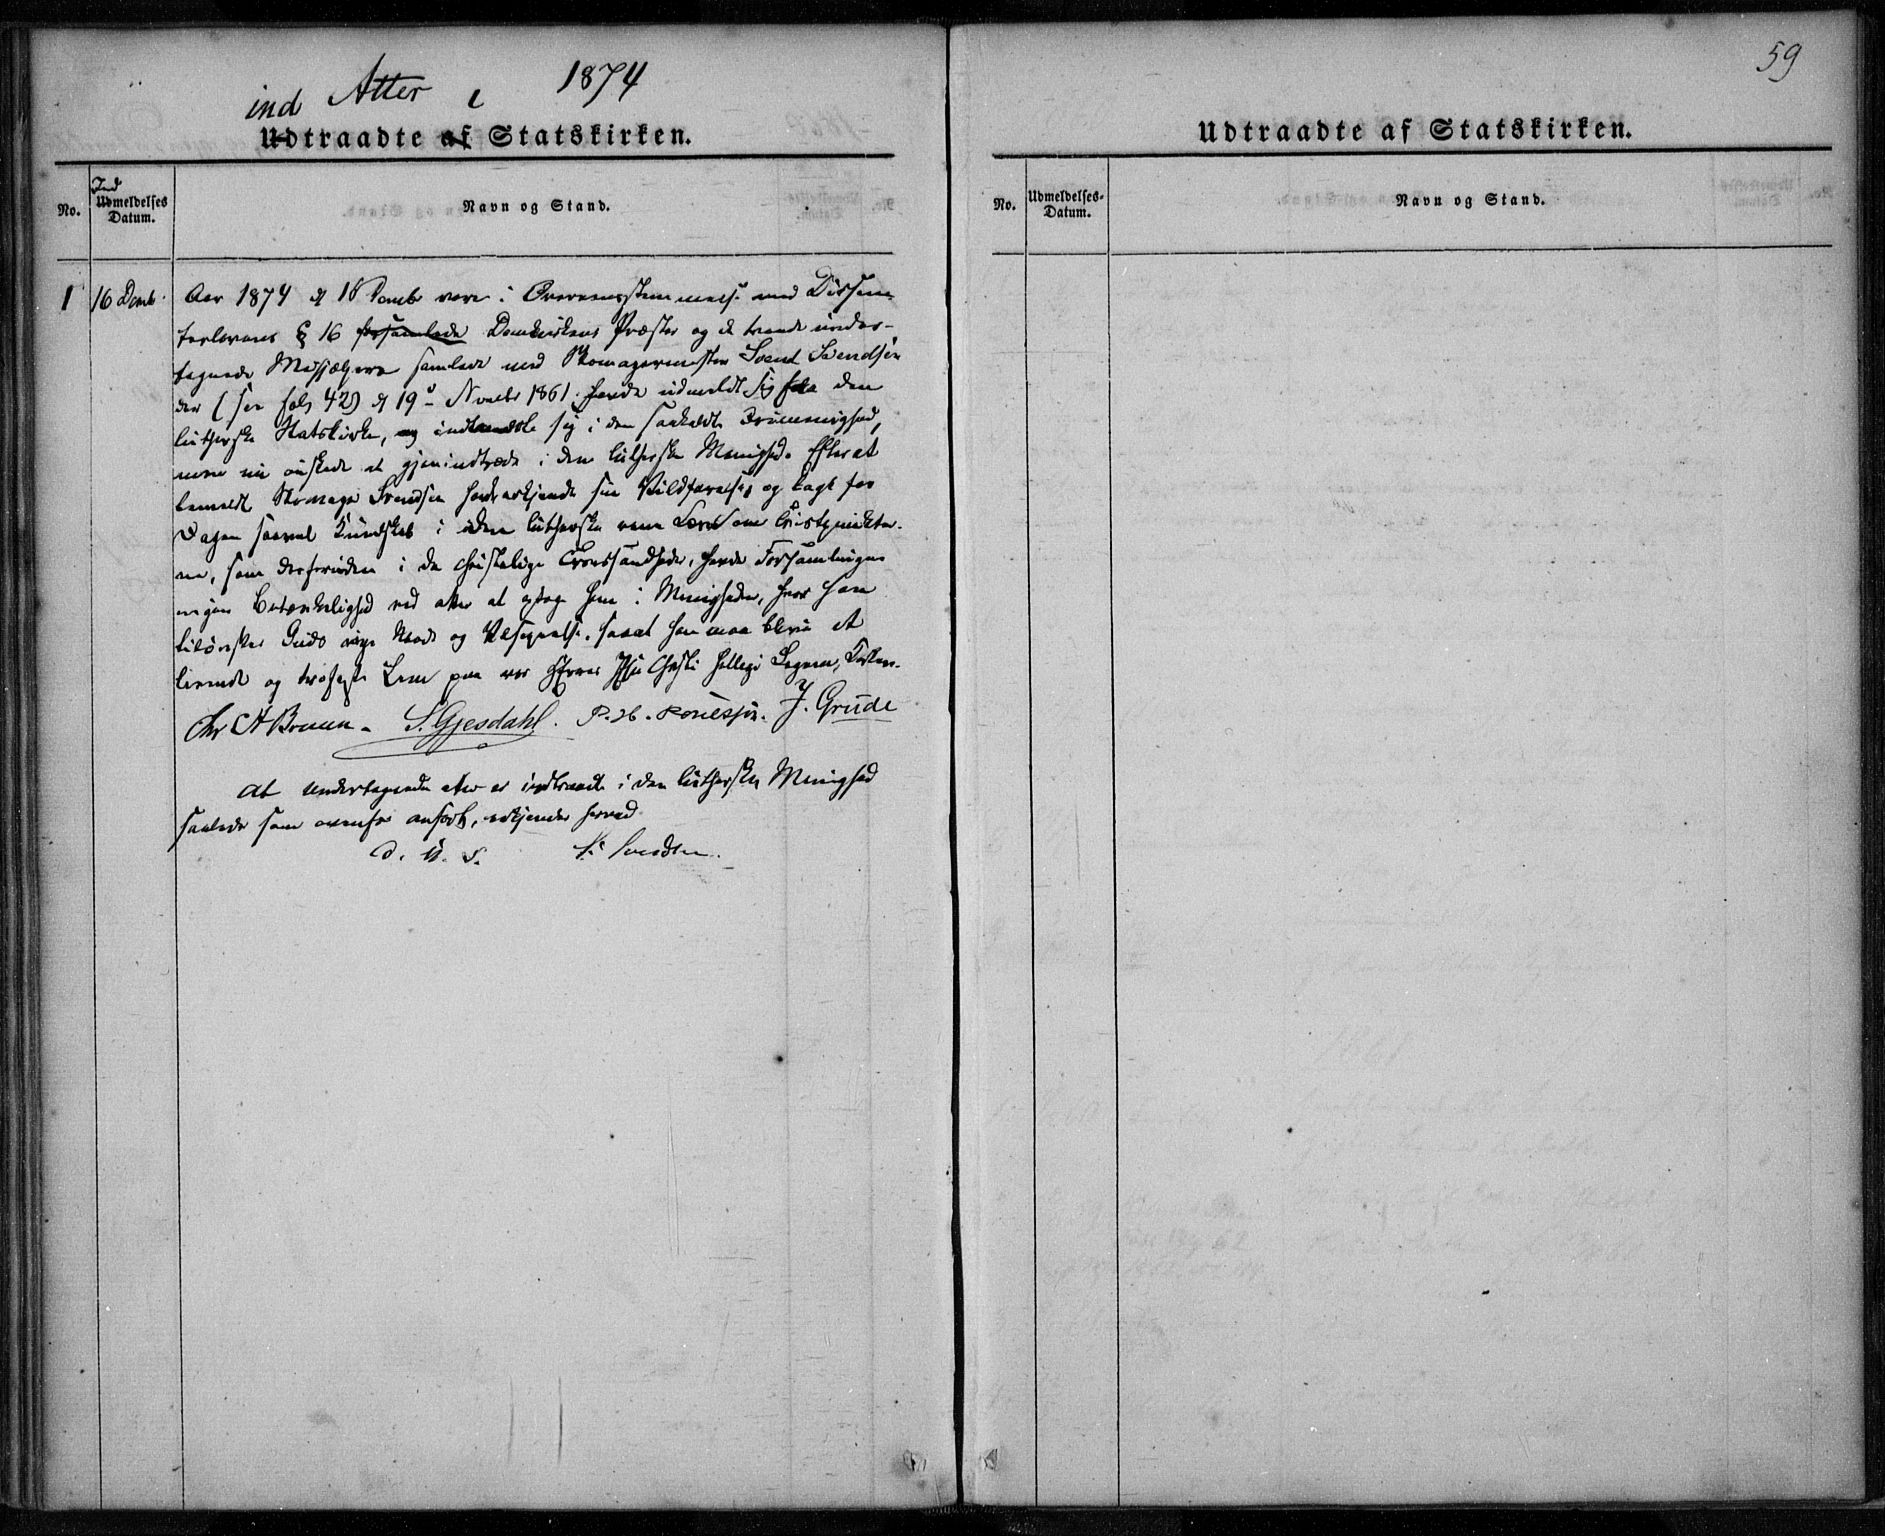 1874
Atter i
ind
Udtraadte af Statskirken.
No.
Ind
Udmeldelses
Datum.
Navn og Stand.
1
16 Decmb.
Aar 1874 d 16 Decmb vare i Overeensstemmelse med Dissen-
terlovens § 16 forsamlede Domkirkens Præster og de tvende under-
tegnede Medhjælpere samlede med Skomagermester Svend Svendsen
der (see fol 42) d 19 Novembr 1861 havde udmeldt sig fra den
lutherske Statskirke, og indmeldte sig i den saakaldte Frimenighed,
men nu ønskede at gjenindtræde i den lutherske Menighed. Efterat
bemeldte Skomager Svendsen havde erkjendt sin Vildfarelse, og lagt for
Dagen saavel Kundskab i den lutherske rene Lære om
ne, som desforuden i de christelige Troessandheder, havde Forsamlingen
ingen Betænkelighed ved atter at optage ham i Menigheden, hvor han
tilønskes Guds rige Naade og Velsignelse, saaat han maa blive et
levende og trofast Lem paa vor Herres Jesu Christi hellige Legeme, Kirken.
Chr A Bruun. S. Gjesdahl. P. H. J. Grude
At undertegnede atter er indtraadt i den lutherske Menighed
saaledes som ovenfor anført, erkjendes herved
d. u. s. S. Svendsen.
59
Udtraadte af Statskirken.
No.
Udmeldelses-
Datum.
Navn og Stand.